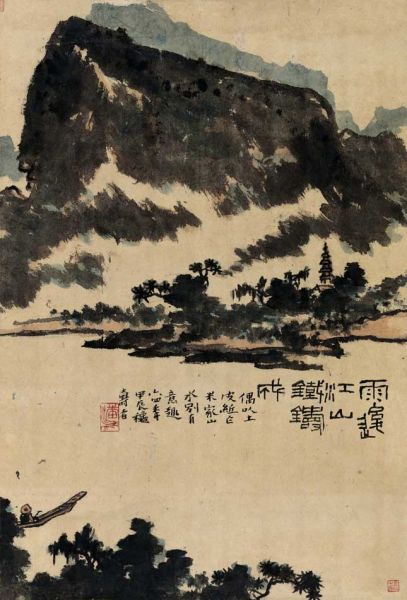 雨後
江山
鐵鑄
成
偶以上
皮紙
米家山
水別有
意趣
甲辰
壽者